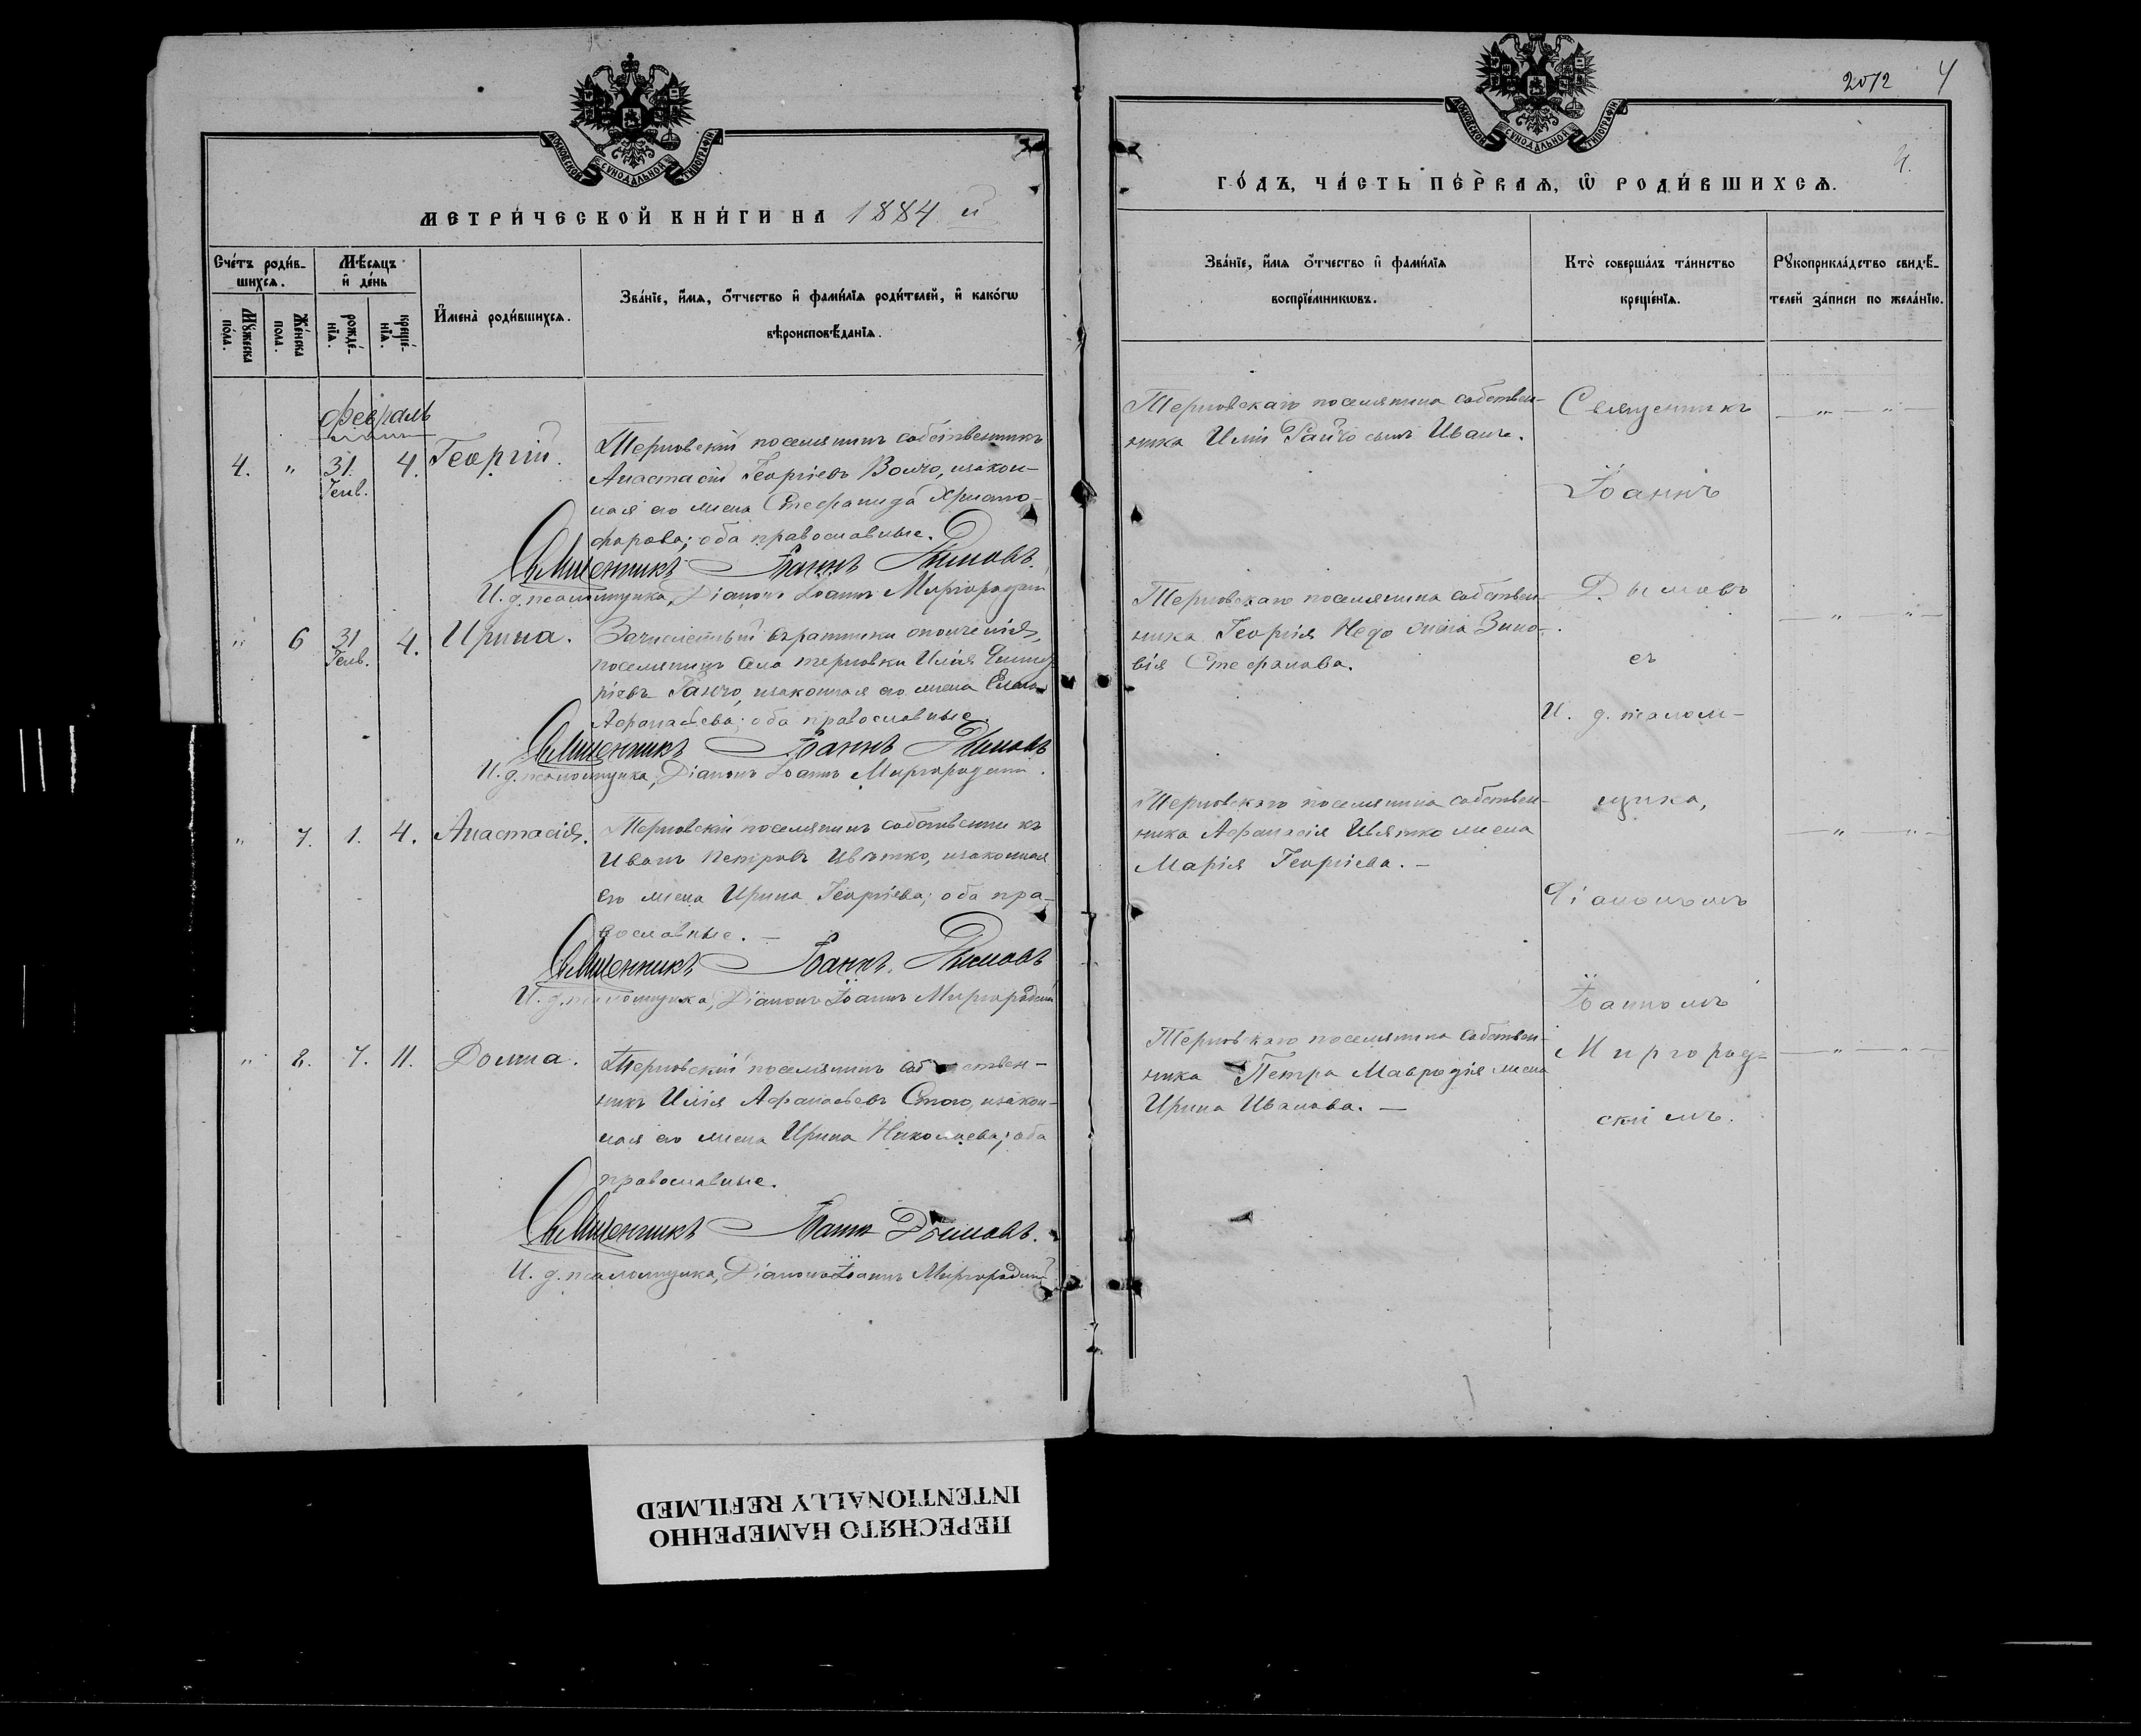 МОСКОВСКОЙ СѴНОДАЛЬНОЙ ТИПОГРАФІИ
МЕТРИ́ЧЕСКОЙ КНИ́ГИ НА 1884 й
Сче́тъ роди́в-
шихсѧ.
Мѣ́сѧцъ
и҆ де́нь
Мꙋ́жеска
по́ла.
Же́нска
пола.
рожде́-
нїѧ.
креще́-
нїѧ.
И҆мена̀ роди́вшихсѧ.
Зва́нїе, и҆́мѧ, ѻ҆́тчество и҆ фами́лїѧ роди́телей, и҆ како́гѡ
вѣроисповѣ́данїѧ.
Февраль
4. " 31. Генв. 4. Георгій.
Терновскій поселянинъ собственникъ
Анастасій Георгіевъ Волчо, изакон-
ная его жена Стефанида Христо-
форова; оба православные.
Священникъ Іоаннъ Дымовъ.
И. д. псаломщика, Діаконъ Іоаннъ Миргородскій
" 6 31 Генв. 4. Ирина.
Зачисленный въ ратники ополченія,
поселянинъ села Терновки Илія Димит
ріевъ Ганчо, изаконная его жена Елена
Афанасьева; оба православные.
Священникъ Іоаннъ Дымовъ
И. д. псаломщика, Діаконъ Іоаннъ Миргородскій.
" 7. 1. 4. Анастасія.
Терновскій поселянинъ собственникъ
Иванъ Петровъ Цвѣтко, изаконная
его жена Ирина Георгіева; оба пра-
вославные. —
Священникъ Іоаннъ Дымовъ
И. д. псаломщика, Діаконъ Іоаннъ Миргородскій
" 8. 7. 11. Домна.
Терновскій поселянинъ собствен-
никъ Илія Афанасьевъ Стою, изакон-
ная его жена Ирина Николаева; оба
православные.
Священникъ Іоаннъ Дымовъ.
И. д. псаломщика, Діаконъ Іоаннъ Миргородскій
2012 4
4.
МОСКОВСКОЙ СѴНОДАЛЬНОЙ ТИПОГРАФІИ
ГО́ДЪ, ЧА́СТЬ ПЕ́РВАѦ, Ѽ РОДИ́ВШИХСѦ.
Зва́нїе, и҆́мѧ ѻ҆́тчество и҆ фами́лїѧ
воспрїе́мникѡвъ.
Кто̀ соверша́лъ та́инство
креще́нїѧ.
Рꙋкоприкла́дство свидѣ́-
телей за́писи по жела́нїю.
Терновскаго поселянина собствен-
ника Иліи Райчо сынъ Иванъ.
Терновскаго поселянина собствен-
ника Георгія Недо жена Зино-
вія Стефанова.
Терновскаго поселянина собствен-
ника Афанасія Цвятко жена
Марія Георгіева. —
Терновскаго поселянина собствен-
ника Петра Мавродія жена
Ирина Иванова. —
Священникъ
Іоаннъ
Дымовъ
съ
И. д. псалом-
щика,
Діакономъ
Іоанномъ
Миргород-
скимъ.
— " — " —
— " — " —
— " — " —
— " — " —
ПЕРЕСНЯТО НАМЕРЕННО
INTENTIONALLY REFILMED